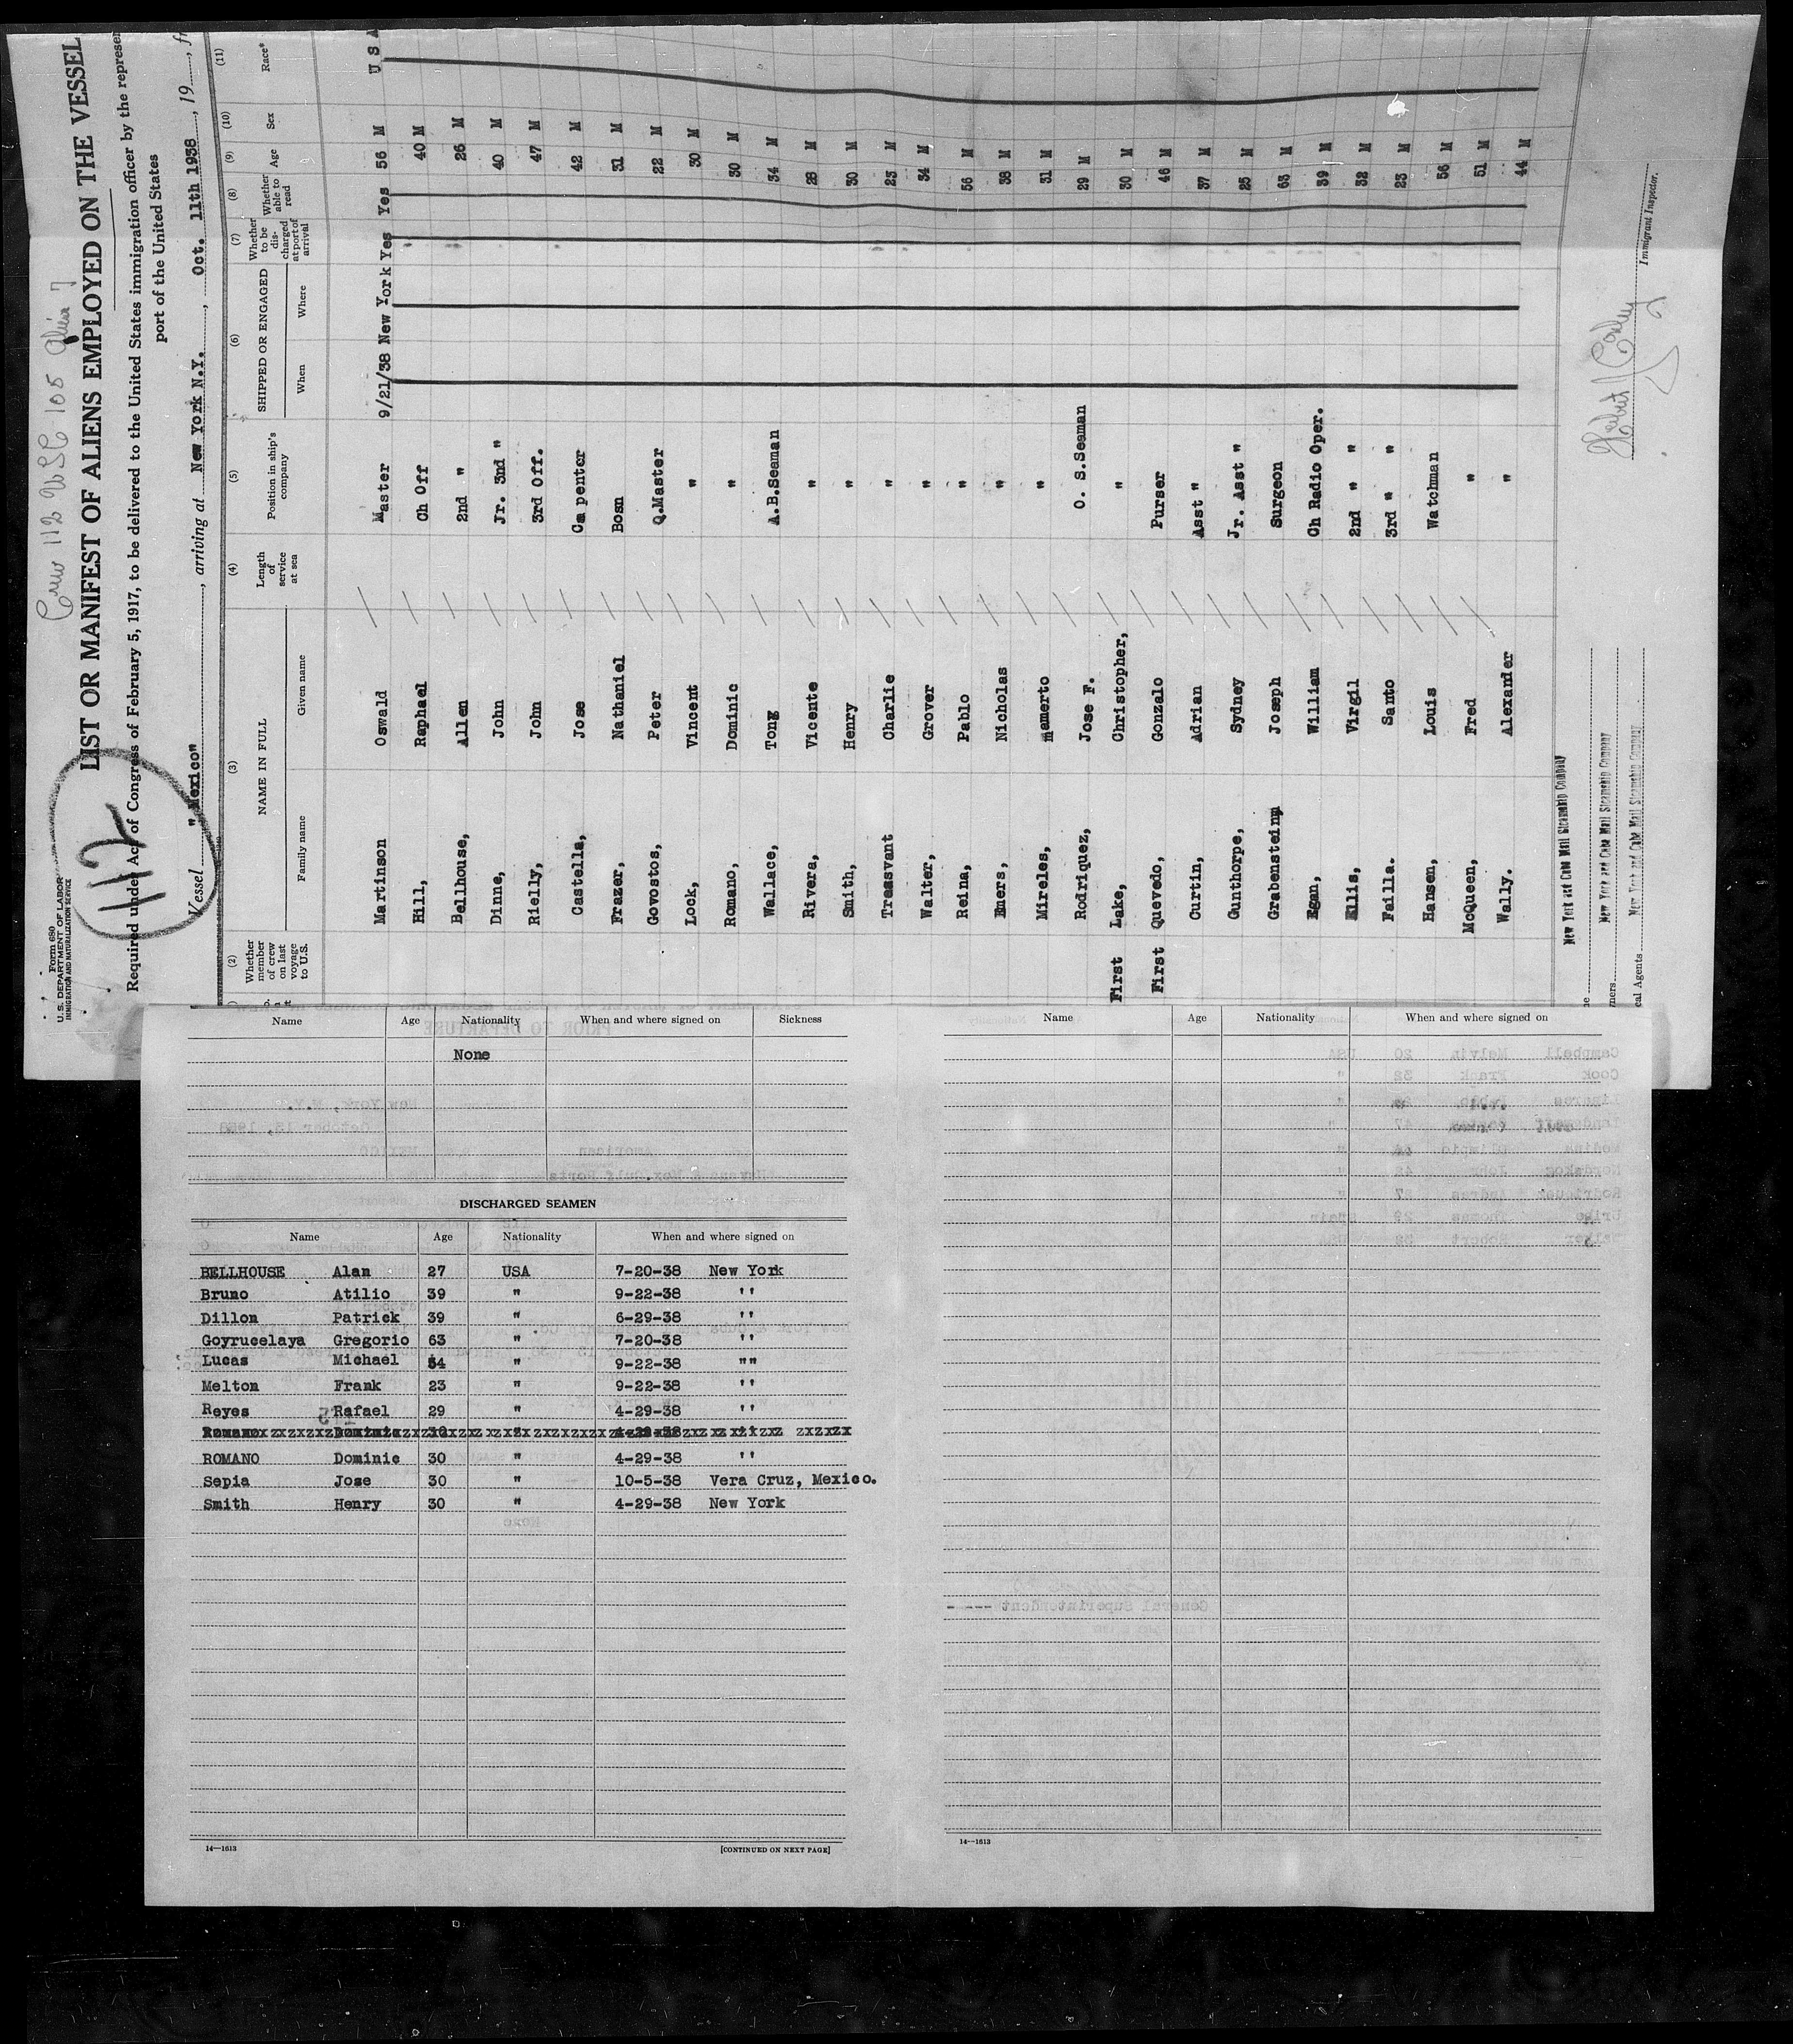 Form 680
U. S. DEPARTMENT OF LABOR
IMMIGRATION AND NATURALIZATION SERVICE
112
Crew 112 USC 105
LIST OR MANIFEST OF ALIENS EMPLOYED ON THE VESSEL
Required under Act of Congress of February 5, 1917, to be delivered to the United States immigration officer by the represen
port of the United States
Vessel "Mexico", arriving at New York N.Y., Oct. 11th 1938, 19, fr
(2) (3) (4) (5) (6) (7) (8) (9) (10) (11)
Whether member of crew on last voyage to U.S. NAME IN FULL Length of service at sea Position in ship's company SHIPPED OR ENGAGED Whether to be discharged at port of arrival Whether able to read Age Sex Race*
Family name Given name When Where
Martinson Oswald Master 9/21/38 New York Yes Yes 56 M U S A
Hill, Raphael Ch Off 40 M
Bellhouse, Allen 2nd " 26 M
Dinne, John Jr. 3nd " 40 M
Rielly, John 3rd Off. 47 M
Castella, Jose Ca penter 42 M
Frazer, Nathaniel Bosn 31 M
Govostos, Peter Q.Master 22 M
Lock, Vincent " 30 M
Romano, Dominic " 30 M
Wallace, Tong A.B.Seaman 34 M
Rivera, Vicente " 28 M
Smith, Henry " 30 M
Treasvant Charlie " 23 M
Walter, Grover " 34 M
Reina, Pablo " 56 M
Emers, Nicholas " 38 M
Mireles, mamerto " 31 M
Rodriquez, Jose F. O. S.Seaman 29 M
First Lake, Christopher, " 30 M
First Quevedo, Gonzalo Purser 46 M
Curtin, Adrian Asst " 37 M
Gunthorpe, Sydney Jr. Asst " 25 M
Grabenstein Joseph Surgeon 63 M
Egan, William Ch Radio Oper. 39 M
Ellis, Virgil 2nd " " 32 M
Failla. Santo 3rd " " 23 M
Hansen, Louis Watchman 56 M
McQueen, Fred " 51 M
Wally. Alexander " 44 M
New York and Cuba Mail Steamship Company
New York and Cuba Mail Steamship Company
cal Agents New York and Cuba Mail Steamship Company
Immigrant Inspector.
Name Age Nationality When and where signed on Sickness
None
DISCHARGED SEAMEN
Name Age Nationality When and where signed on
BELLHOUSE Alan 27 USA 7-20-38 New York
Bruno Atilio 39 " 9-22-38 ''
Dillon Patrick 39 " 6-29-38 ''
Goyrucelaya Gregorio 63 " 7-20-38 ''
Lucas Michael 54 " 9-22-38 ""
Melton Frank 23 " 9-22-38 ''
Reyes Rafael 29 " 4-29-38 ''
ROMANO Dominic 30 " 4-29-38 ''
Sepia Jose 30 " 10-5-38 Vera Cruz, Mexico.
Smith Henry 30 " 4-29-38 New York
14—1613 [CONTINUED ON NEXT PAGE]
Name Age Nationality When and where signed on
14—1613